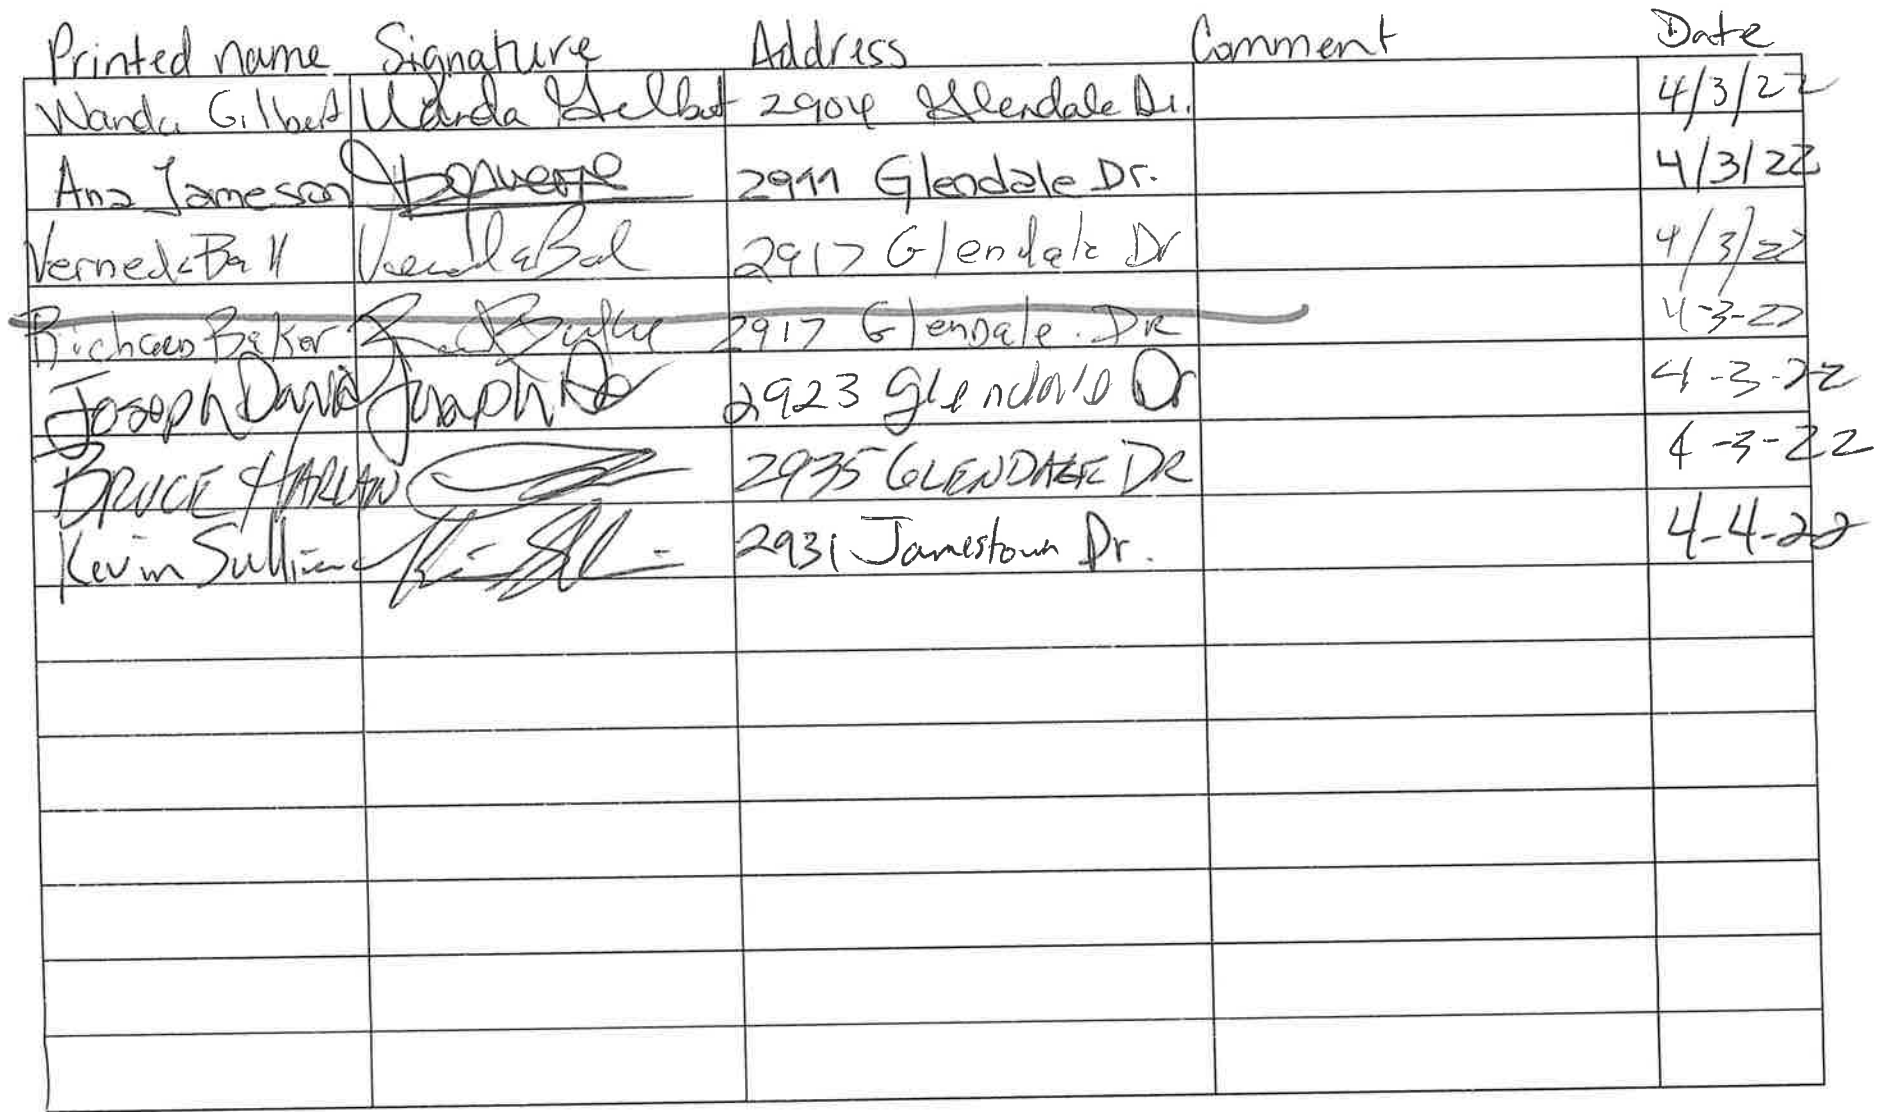 Printed name Signature Address Comment Date
Wanda Gilbert Wanda Gilbert 2904 Glendale Dr. 4/3/22
Ana Jameson 2911 Glendale Dr. 4/3/22
Verneda Ball Verneda Ball 2917 Glendale Dr 4/3/22
Richard Baker 2917 Glendale. DR 4-3-22
Joseph David Joseph 2923 Glendale Dr 4-3-22
BRUCE HARLAN 2935 GLENDALE DR 4-3-22
Kevin Sullivan 2931 Jamestown Dr. 4-4-22